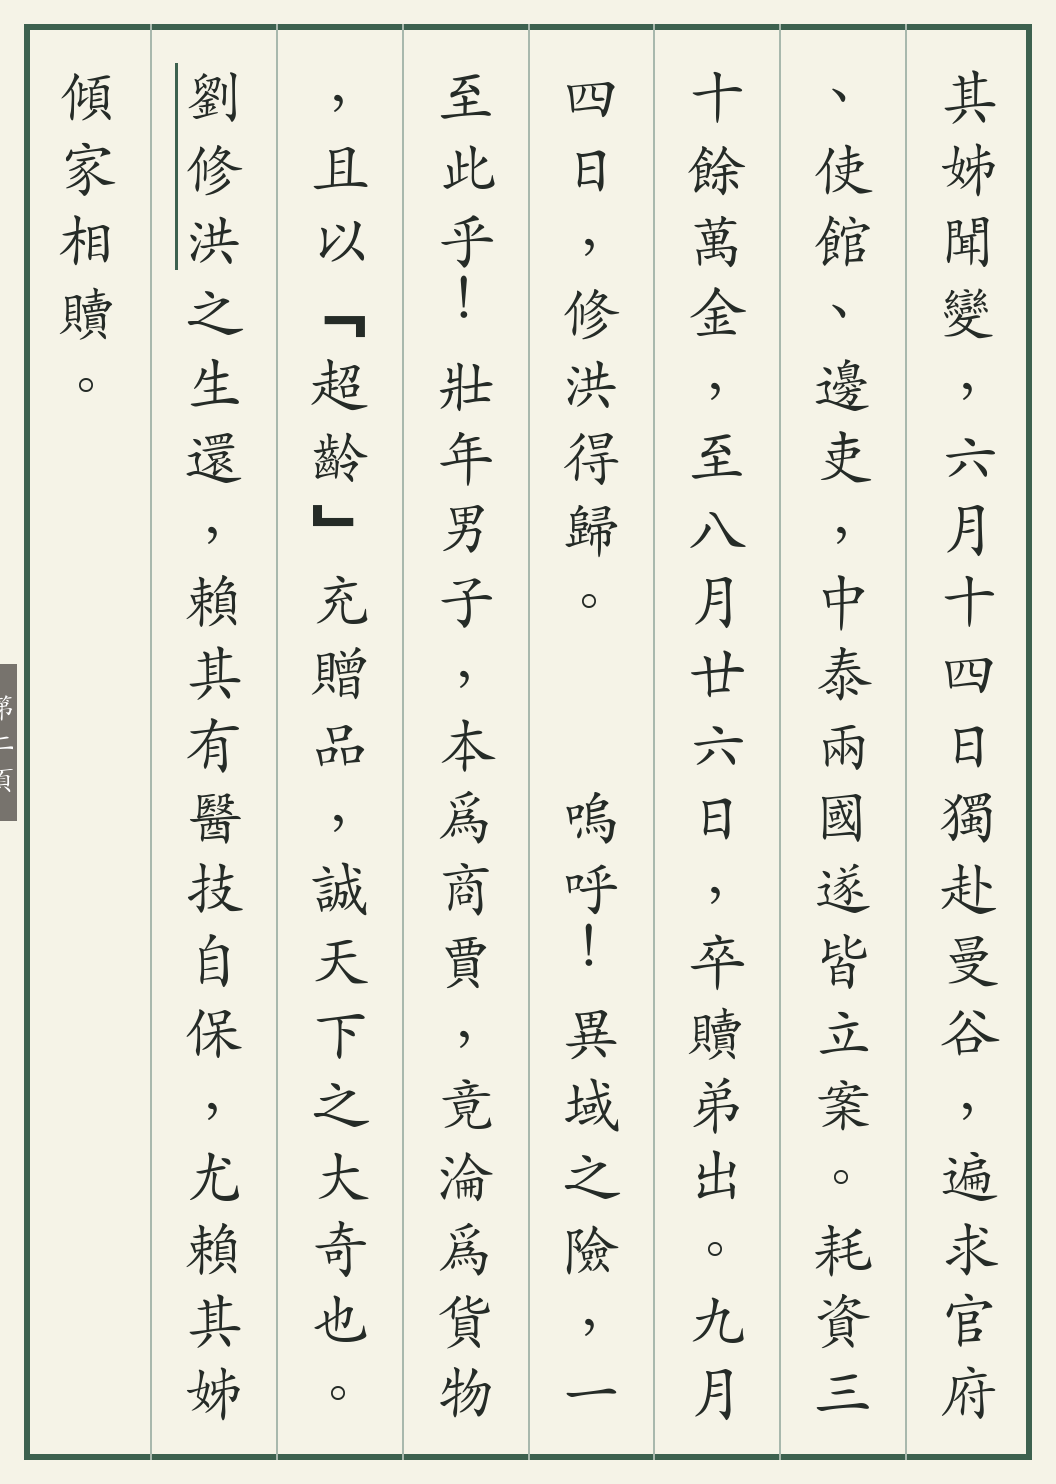 其姊聞變，六月十四日獨赴曼谷，遍求官府
、使館、邊吏，中泰兩國遂皆立案。耗資三
十餘萬金，至八月廿六日，卒贖弟出。九月
四日，修洪得歸。　　嗚呼！異域之險，一
至此乎！壯年男子，本爲商賈，竟淪爲貨物
，且以『超齡』充贈品，誠天下之大奇也。
劉修洪之生還，賴其有醫技自保，尤賴其姊
傾家相贖。
第二頁